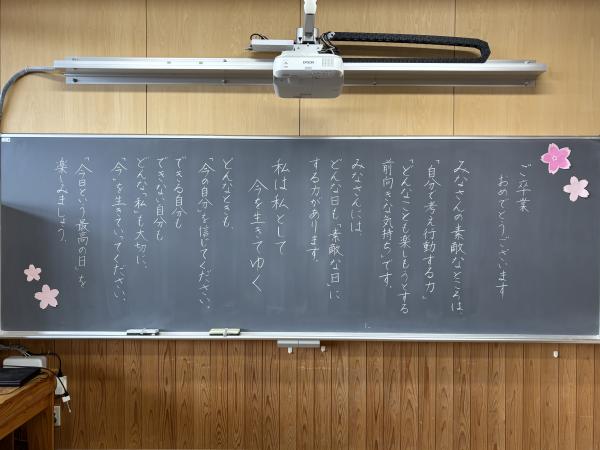 EPSON
ご卒業
おめでとうございます
みなさんの素敵なところは、
「自分で考え行動する力」
「どんなことも楽しもうとする
前向きな気持ち」です。
みなさんには
どんな日も「素敵な日」に
する力があります。
私は私として
今を生きてゆく
どんなときも、
「今の自分」を信じてください。
できる自分も
できない自分も
どんな「私」も大切に、
「今」を生きていてください。
「今日という最高の日」を
楽しみましょう。